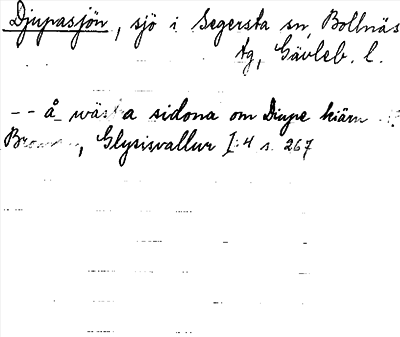 Djupasjön, sjö i Segersta sn, Bollnäs
tg, Gävleb. l.
-- å wästra sidona om Diupe kiärn
Broman, Glysisvallur I:4 s. 267